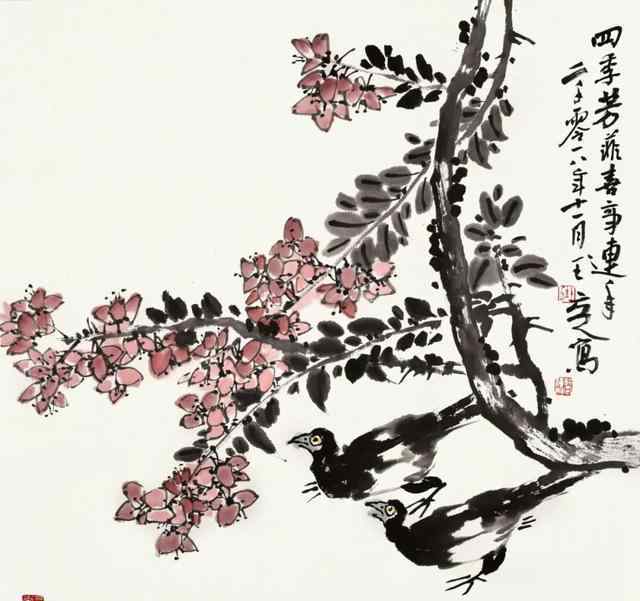 四季芳菲喜事連年
二千零一八年十一月王 寫